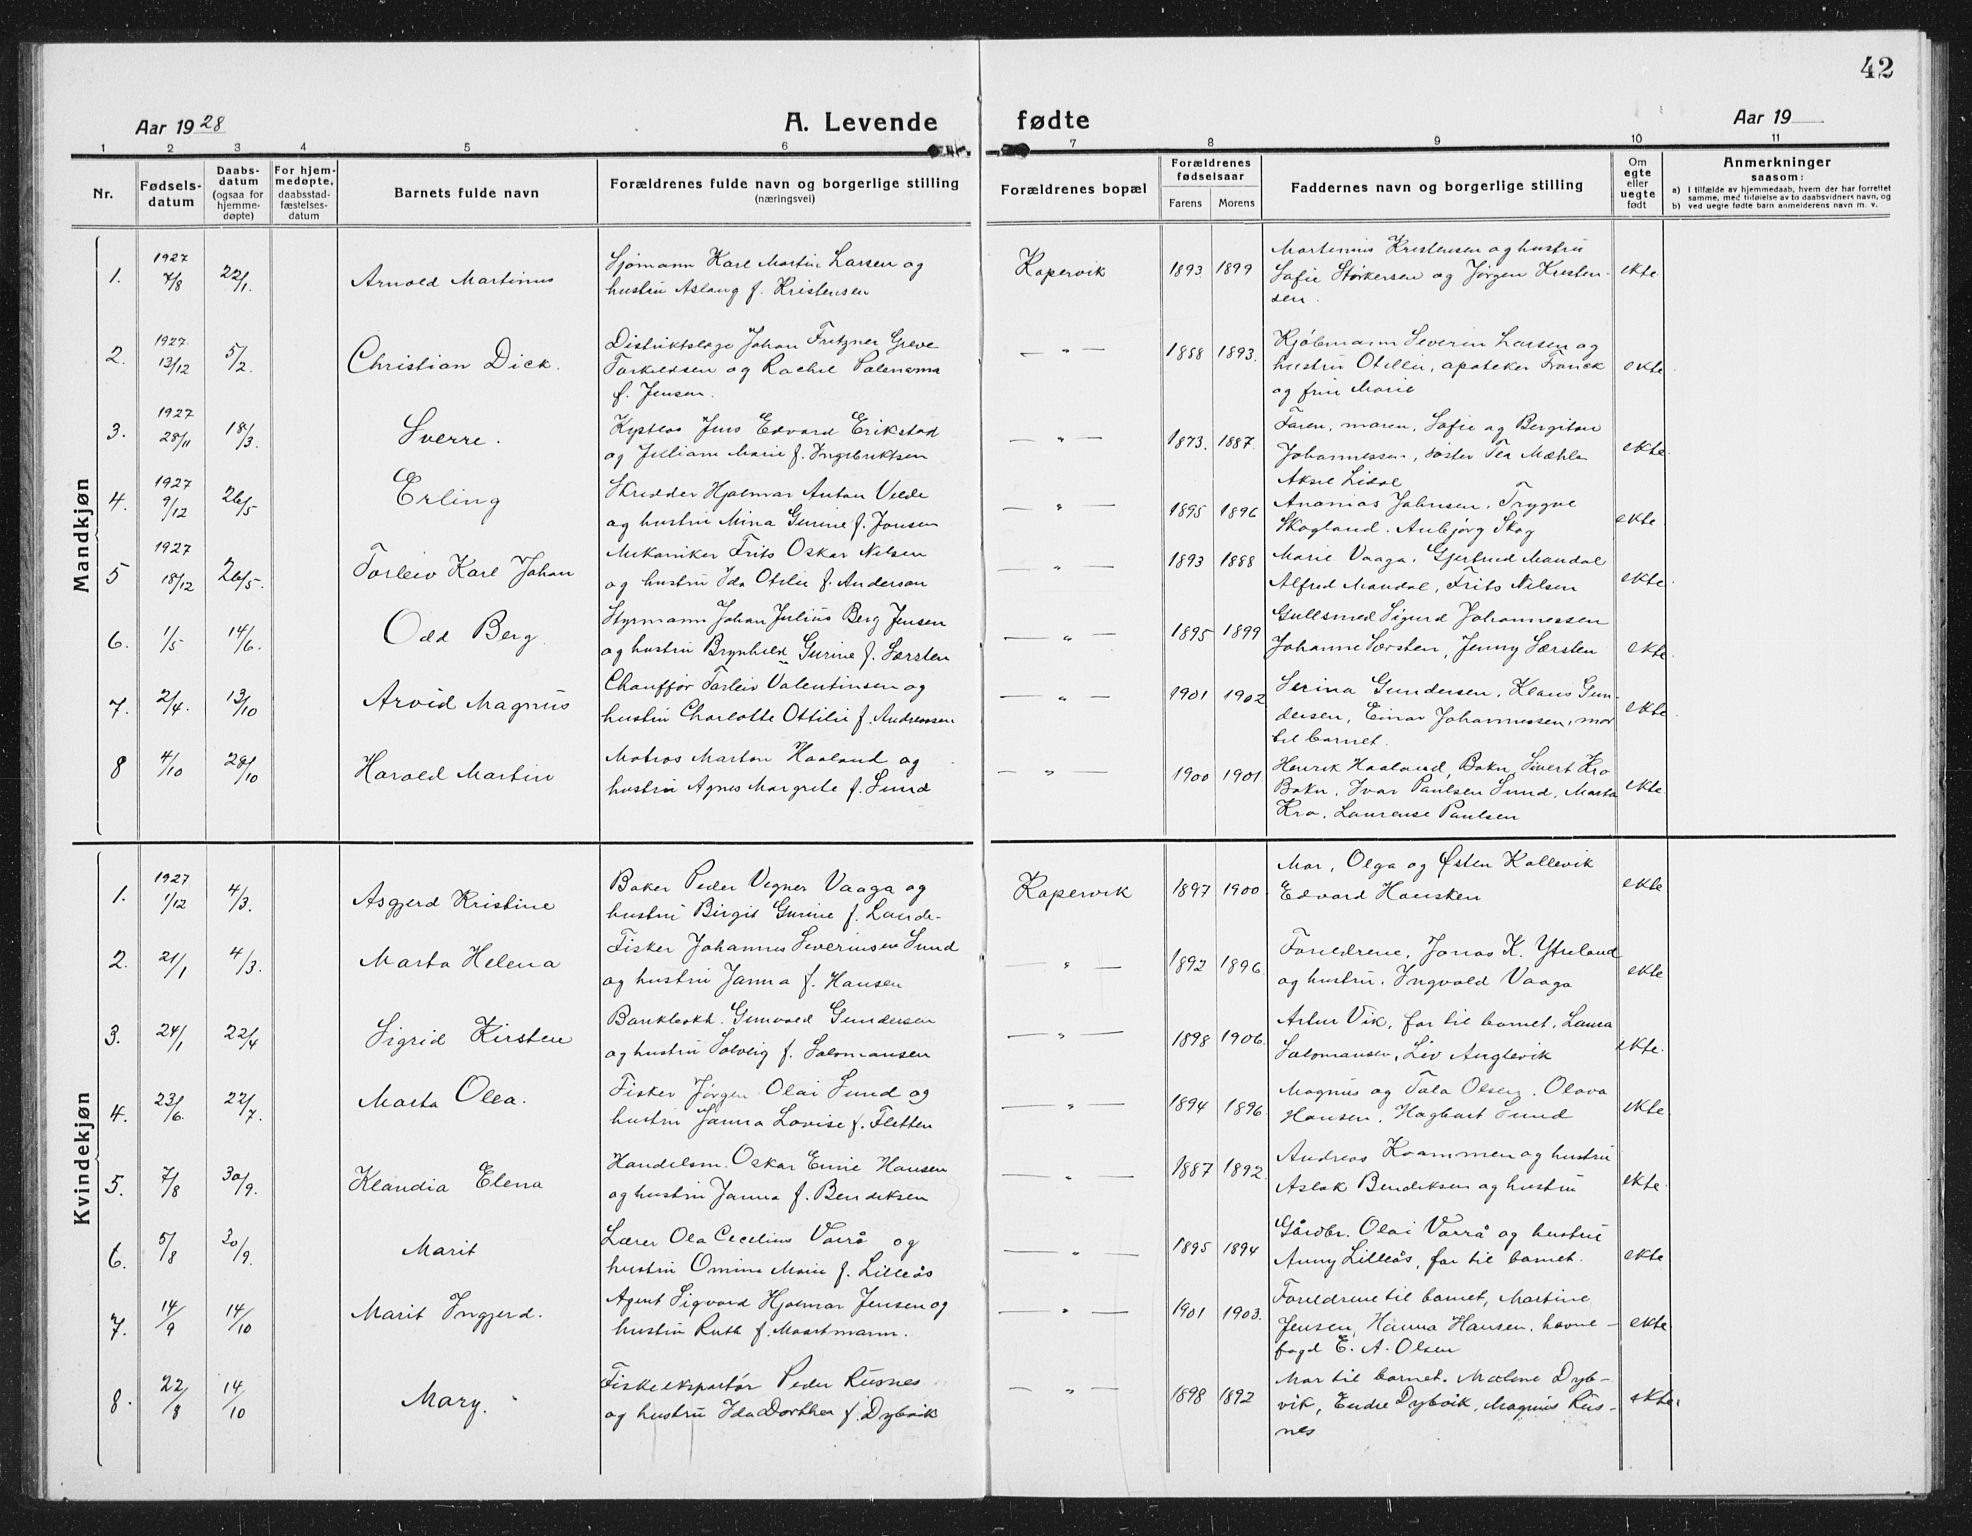 42
Aar 1928
A. Levende fødte
Aar 19
1 2 3 4 5 6 7 8 9 10 11
Nr.
Fødsels-
datum
Daabs-
datum
(ogsaa for
hjemme-
døpte)
For hjem-
medøpte,
daabsstad-
fæstelses-
datum
Barnets fulde navn
Forældrenes fulde navn og borgerlige stilling
(næringsvei)
Forældrenes bopæl
Forældrenes
fødselsaar
Farens Morens
Faddernes navn og borgerlige stilling
Om
egte
eller
uegte
født
Anmerkninger
saasom:
a) I tilfælde av hjemmedaab, hvem der har forrettet
samme, med tilføielse av to daabsvidners navn, og
b) ved uegte fødte barn anmelderens navn m. v.
Mandkjøn
1. 1927 7/8 22/1. Arnold Martinus
Sjømann Karl Martin Larsen og
hustru Aslaug f. Kristensen
Kopervik 1893 1899
Martinius Kristensen og hustru
Sofie Størkersen og Jørgen Kristen-
sen.
ekte
2. 1927 13/12 5/2. Christian Dick.
Distriktslæge Johan Fritzner Greve
Torkildsen og Rachel
f. Jensen.
— „ — 1888 1893.
Kjøbmann Severin Larsen og
hustru Otilie, apoteker Franck
og fru Marie
ekte
3. 1927 28/11 18/3. Sverre.
Jens Edvard Erikstad
og Juliane Marie f. Ingebriktsen
— „ — 1873. 1887.
Faren, moren, Sofie og Bergiton
Johannessen, søster Tea Mæhle
Aksel Lidal
ekte
4. 1927 9/12 26/5. Erling
Skredder Hjalmar Anton Velde
og hustru Mina Gurine f. Jonsen
— „ — 1895 1896
Ananias Johnsen. Trygve
Skogland. Anbjørg Skog
ekte.
5 1927 18/12 26/5. Torleiv Karl Johan
Mekaniker Frits Oskar Nilsen
og hustru Ida Otilie f. Anderson
— „ — 1893 1888
Marie Vaaga. Gjertrud Mandal
Alfred Mandal, Frits Nilsen
ekte.
6. 1/5 14/6. Odd Berg.
Styrmann Johan Julius Berg Jensen
og hustru Brynhild Gurine f. Sørsten
— „ — 1895 1899
Gullsmed Sigurd Johannessen
Johanne Sørsten, Jenny Sørsten
ekte.
7. 2/4. 13/10 Arvid Magnus
Chauffør Torleiv Valentinsen og
hustru Charlotte Ottilie f. Andreassen
— „ — 1901 1902
Serina Gundersen, Klaus Gun-
dersen, Einar Johannessen, mor
til barnet.
ekte.
8 4/10 28/10 Harald Martin
Matros Marton Haaland og
hustru Agnes Margrete f. Sund
— „ — 1900 1901
Henrik Haaland, Bokn, Sivert Kro
Bokn, Ivar Paulsen Sund, Marta
Kro, Laurense Paulsen
ekte.
Kvindekjøn
1. 1927 1/12 4/3. Asgjerd Kristine
Baker Peder Vegner Vaaga og
hustru Birgit Gurine f. Lande.
Kopervik 1897 1900.
Mor, Olga og Østen Kallevik
Edvard Hausken
ekte
2. 21/1 4/3. Marta Helena
Fisker Johannes Severinsen Sund
og hustru Janna f. Hansen
— „ — 1892 1896.
Foreldrene, Jonas K. Ytreland
og hustru, Ingvald Vaaga
ekte
3. 24/1 22/4 Sigrid Kirsten
Bankbokh. Gunvald Gundersen
og hustru Solveig f. Salomonsen
— „ — 1898 1906.
Artur Vik, far til barnet, Laura
Salomonsen, Liv
ekte.
4. 23/6. 22/7. Marta Olea.
Fisker Jørgen Olai Sund og
hustru Janna Lovise f. Fletten
— „ — 1894 1896
Magnus og Tala Olsen, Olava
Hansen, Hagbart Sund
ekte
5. 7/8 30/9. Klandia Elena
Handelsm. Oskar Hansen
og hustru Janna f. Bendiksen
— „ — 1887 1892.
Andreas Kvammen og hustru
Aslak Bendiksen og hustru
ekte.
6. 5/8 30/9. Marit
Lærer Ola Cecelius Varrå og
hustru Omine Marie f. Lilleås
— „ — 1895 1894
Gårdbr. Olai Varrå og hustru
Anny Lilleås, far til barnet.
ekte
7. 14/9 14/10 Marit Ingjerd.
Agent Sigvard Hjalmar Jensen og
hustru Ruth f. Maartmann.
— „ — 1901 1903.
Foreldrene til barnet, Martine
Jensen, Hanna Hansen, havne-
fogd E. A. Olsen
ekte
8. 22/8 14/10 Mary.
Fiskeeksportør Peder Rusnes
og hustru Ida Dorthea f. Dybvik
— „ — 1898 1892
Mor til barnet. Malene Dyb-
vik, Endre Dybvik, Magnus Rus-
nes
ekte.